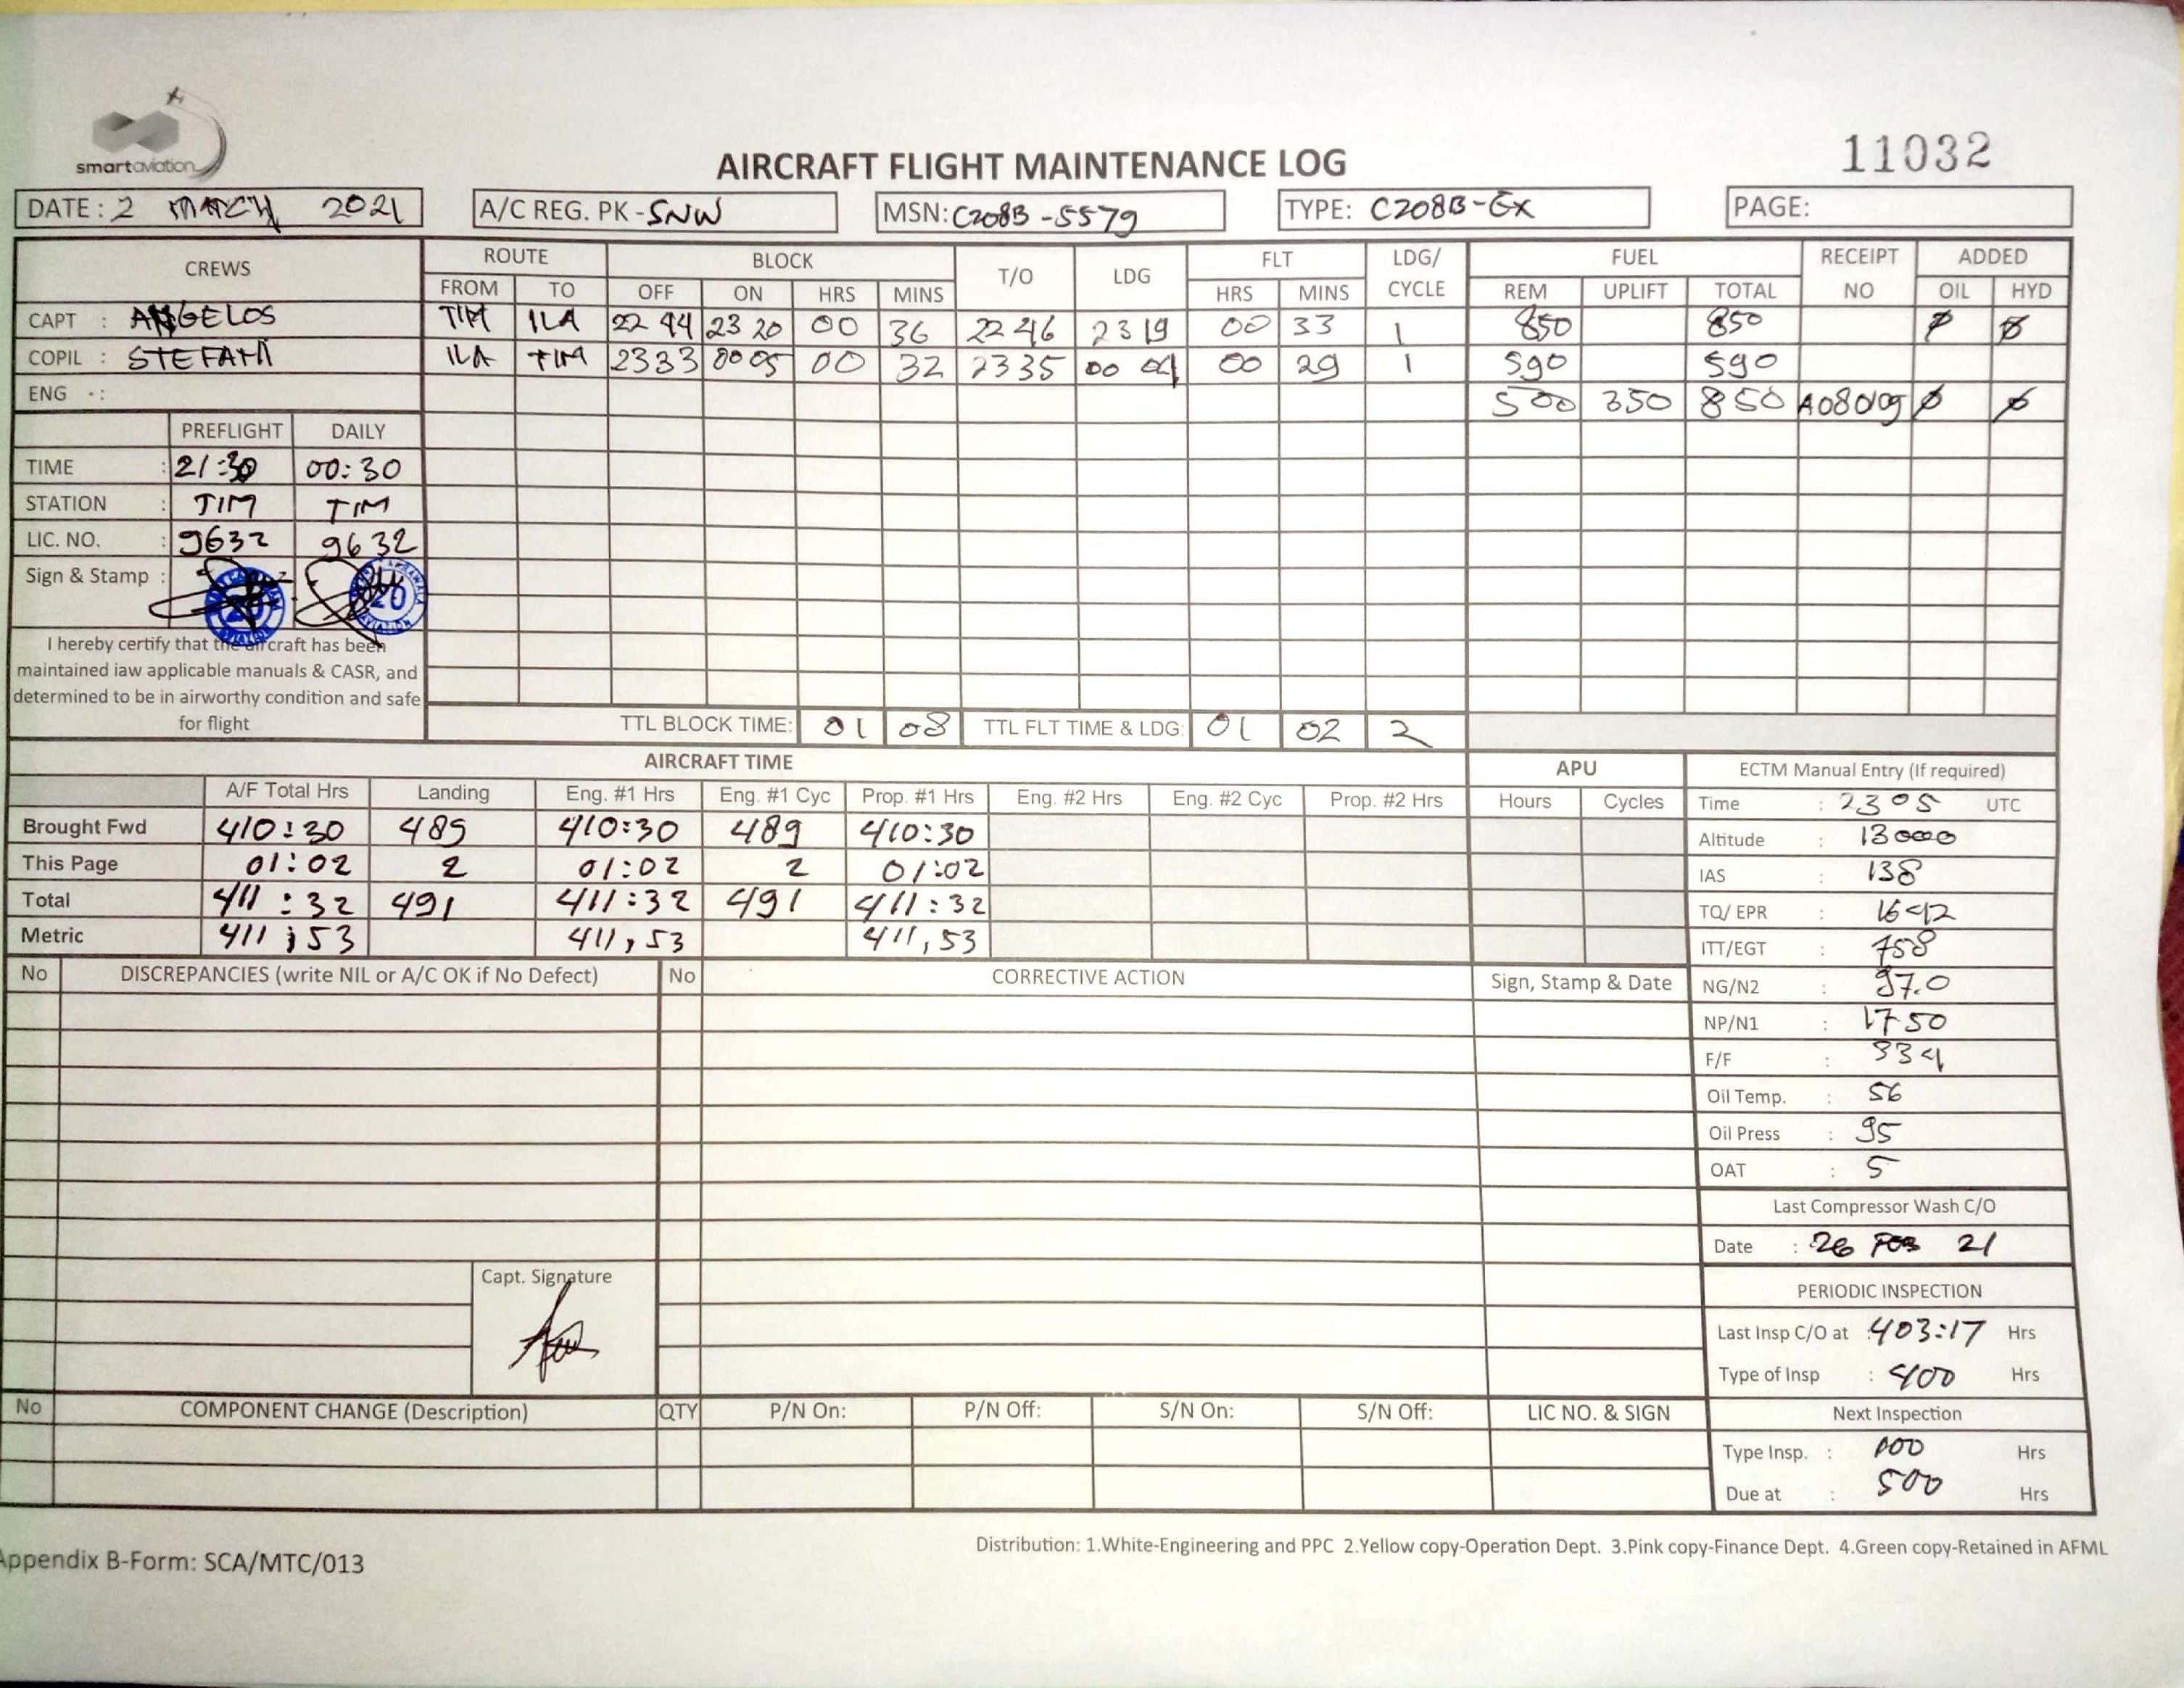 smartaviation
11032
AIRCRAFT FLIGHT MAINTENANCE LOG
DATE : 2 MARCH 2021 A/C REG. PK - SNW MSN: C208B - 5579 TYPE: C208B-EX PAGE:
CREWS ROUTE BLOCK T/O LDG FLT LDG/ CYCLE FUEL RECEIPT NO ADDED
FROM TO OFF ON HRS MINS HRS MINS REM UPLIFT TOTAL OIL HYD
CAPT : ANGELOS TIM ILA 22 44 23 20 00 36 22 46 23 19 00 33 1 850 850 ϕ ϕ
COPIL : STEFANI ILA TIM 2333 00 05 00 32 23 35 00 04 00 29 1 590 590
ENG : 500 350 850 ϕ ϕ
PREFLIGHT DAILY
TIME : 21:30 00:30
STATION : TIM TIM
LIC. NO. : 9632 9632
Sign & Stamp :
20 20
AVIATION
I hereby certify that the aircraft has been
maintained iaw applicable manuals & CASR, and
determined to be in airworthy condition and safe
for flight
TTL BLOCK TIME: 01 08 TTL FLT TIME & LDG: 01 02 2
AIRCRAFT TIME APU ECTM Manual Entry (If required)
A/F Total Hrs Landing Eng. #1 Hrs Eng. #1 Cyc Prop. #1 Hrs Eng. #2 Hrs Eng. #2 Cyc Prop. #2 Hrs Hours Cycles Time : 2305 UTC
Brought Fwd 410:30 489 410:30 489 410:30 Altitude : 13000
This Page 01:02 2 01:02 2 01:02 IAS : 138
Total 411:32 491 411:32 491 411:32 TQ/ EPR : 1642
Metric 411,53 411,53 411,53 ITT/EGT : 758
No DISCREPANCIES (write NIL or A/C OK if No Defect) No CORRECTIVE ACTION Sign, Stamp & Date NG/N2 : 97.0
NP/N1 : 1750
F/F : 334
Oil Temp. : 56
Oil Press : 95
OAT : 5
Last Compressor Wash C/O
Date : 26 FEB 21
Capt. Signature
PERIODIC INSPECTION
Last Insp C/O at : 403:17 Hrs
Type of Insp : 400 Hrs
No COMPONENT CHANGE (Description) QTY P/N On: P/N Off: S/N On: S/N Off: LIC NO. & SIGN Next Inspection
Type Insp. : 100 Hrs
Due at : 500 Hrs
Distribution: 1.White-Engineering and PPC 2.Yellow copy-Operation Dept. 3.Pink copy-Finance Dept. 4.Green copy-Retained in AFML
Appendix B-Form: SCA/MTC/013